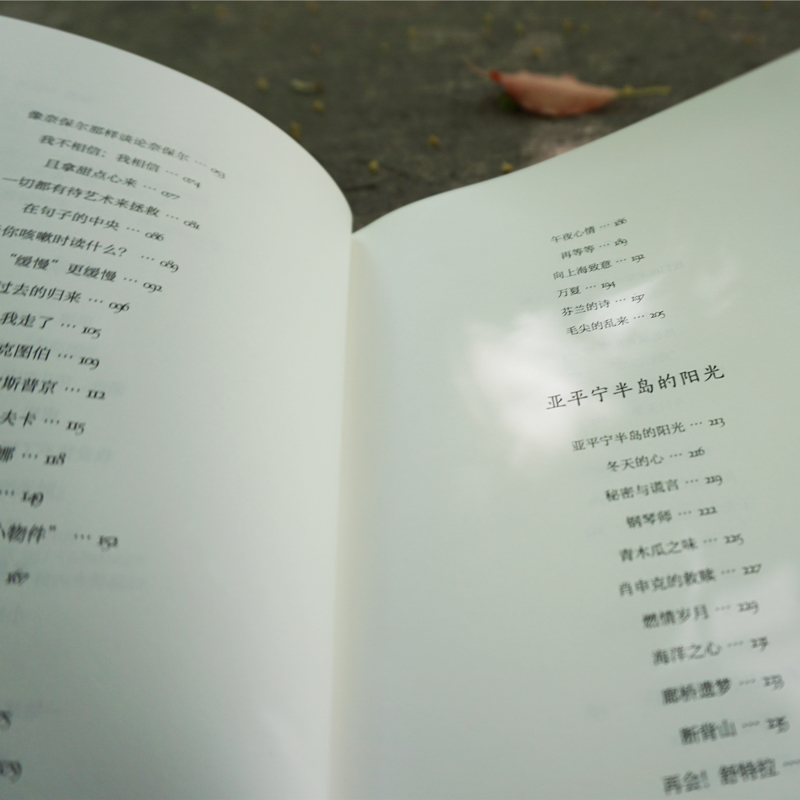 像奈保尔那样谈论奈保尔 … 053
我不相信；我相信 … 074
且拿甜点心来 … 077
一切都有待艺术来拯救 … 081
在句子的中央 … 086
你咳嗽时读什么？ … 089
“缓慢”更缓慢 … 092
过去的归来 … 096
我走了 … 105
克图伯 … 109
斯普京 … 112
夫卡 … 115
娜 … 118
… 149
小物件” … 152
167
午夜心情 … 186
再等等 … 189
向上海致意 … 192
万夏 … 194
芬兰的诗 … 197
毛尖的乱来 … 205
亚平宁半岛的阳光
亚平宁半岛的阳光 … 213
冬天的心 … 216
秘密与谎言 … 219
钢琴师 … 222
青木瓜之味 … 225
肖申克的救赎 … 227
燃情岁月 … 229
海洋之心 … 231
廊桥遗梦 … 233
断背山 … 235
再会！舒特拉